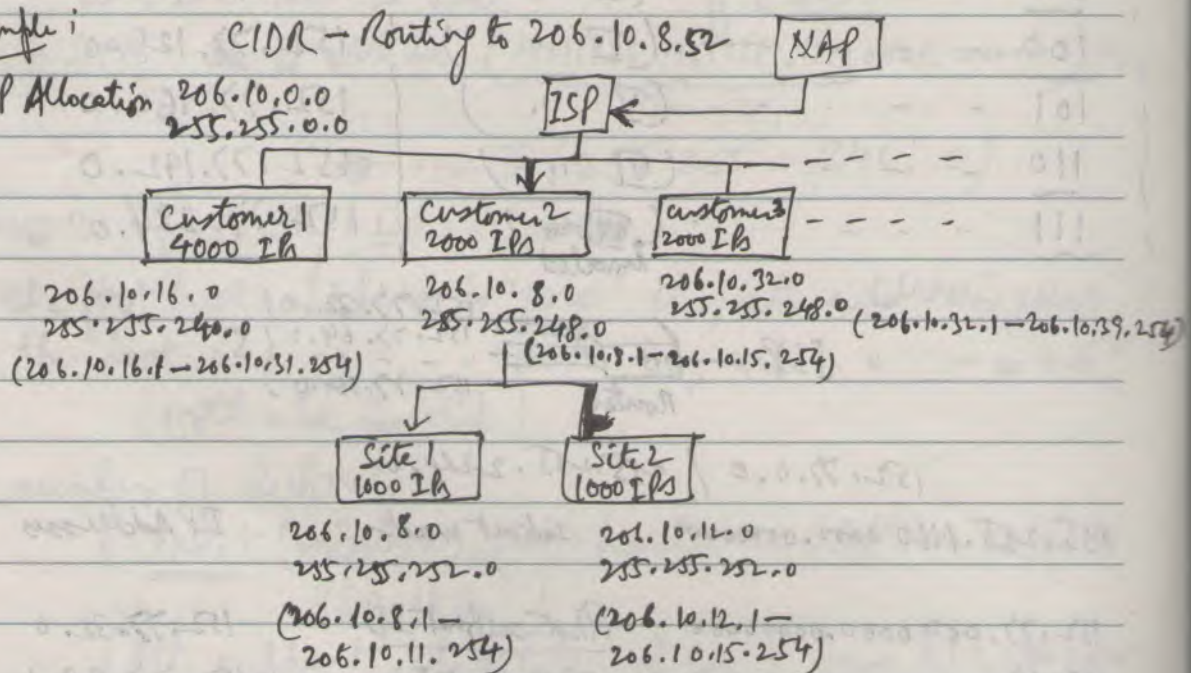 mple :
CIDR – Routing to 206.10.8.52
NAP
P Allocation 206.10.0.0
255.255.0.0
ISP
Customer 1
4000 IPs
Customer 2
2000 IPs
Customer 3
2000 IPs
206.10.16.0
255.255.240.0
(206.10.16.1 – 206.10.31.254)
206.10.8.0
255.255.248.0
(206.10.8.1 – 206.10.15.254)
206.10.32.0
255.255.248.0
(206.10.32.1 – 206.10.39.254)
Site 1
1000 IPs
Site 2
1000 IPs
206.10.8.0
255.255.252.0
(206.10.8.1 –
206.10.11.254)
206.10.12.0
255.255.252.0
(206.10.12.1 –
206.10.15.254)